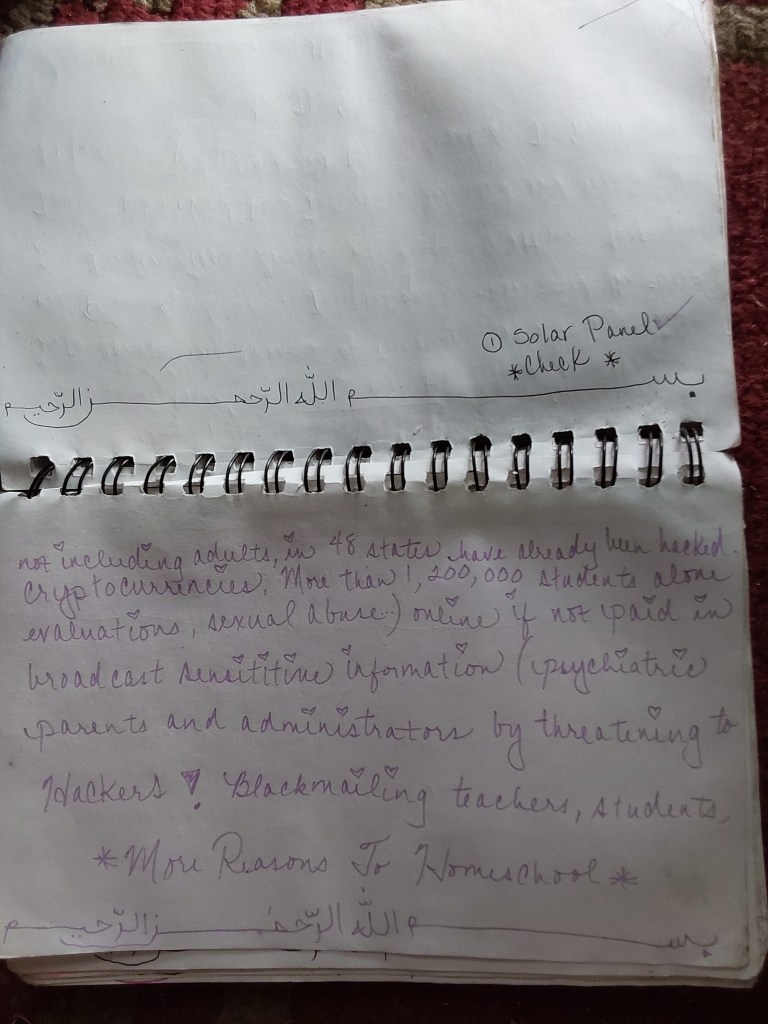 ① Solar Panel ✓
*Check *
بسم الله الرّحمـن الرّحيم
بسم الله الرّحمـن الرّحيم
*More Reasons To Homeschool*
Hackers! Blackmailing teachers, students,
parents and administrators by threatening to
broadcast sensititive information (psychiatric
evaluations, sexual abuse..) online if not paid in
cryptocurrencies. More than 1,200,000 students alone
not including adults, in 48 states have already been hacked.